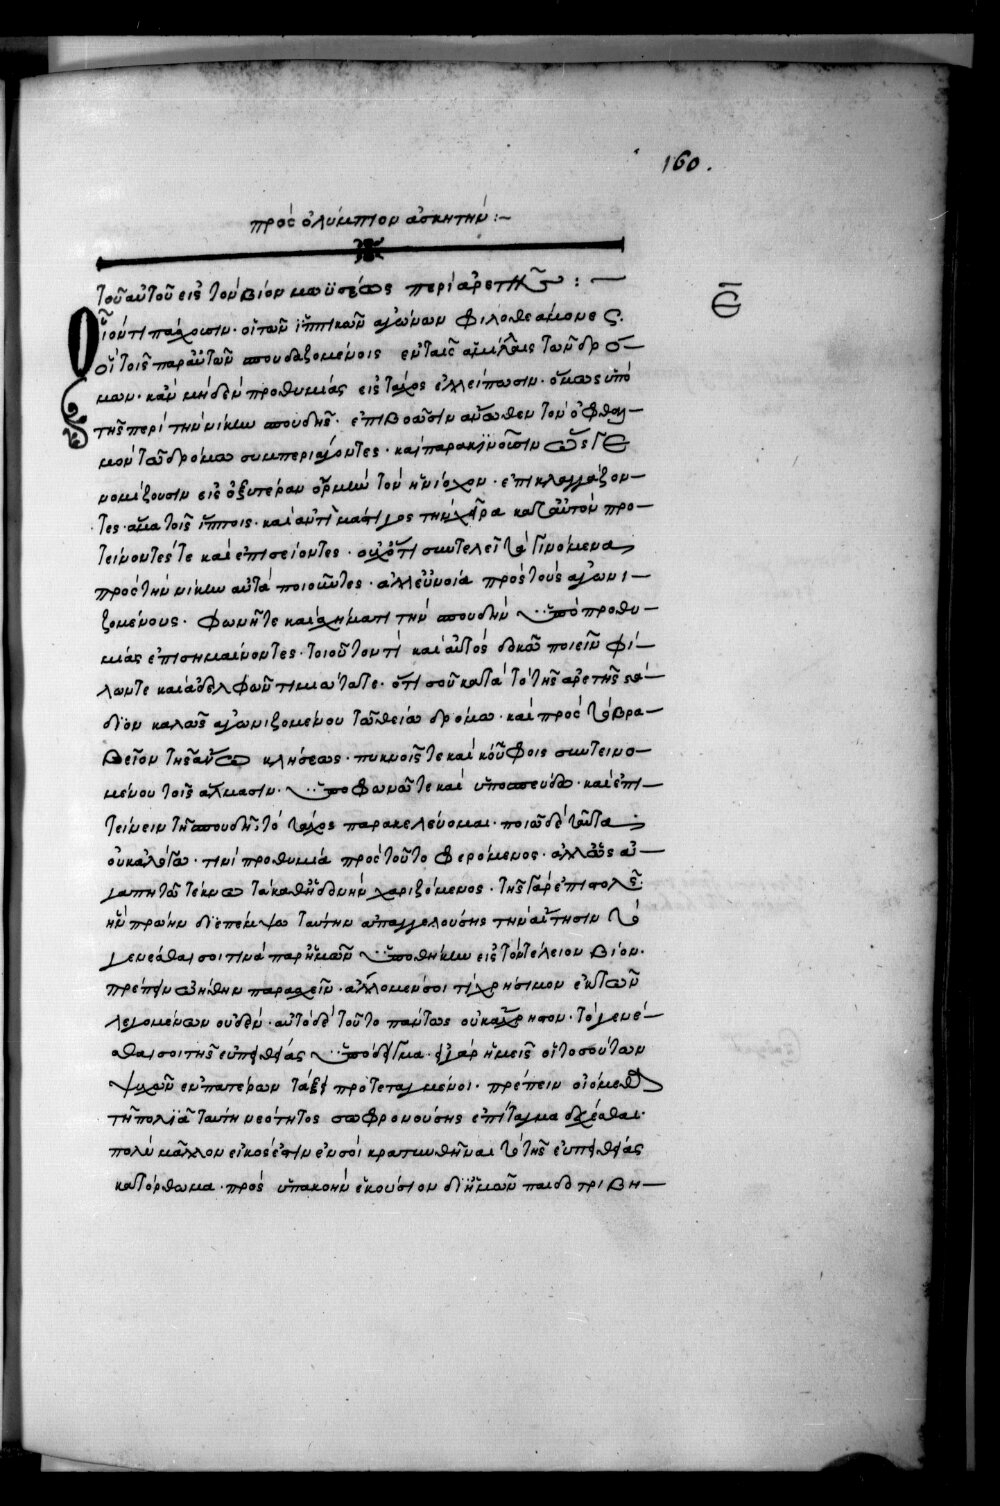 160.
πρὸς ὀλύμπιον ἀσκητήν :~
τοῦ αὐτοῦ εἰς τὸν βίον μωϋσέως περὶ ἀρετῆς : —
Ε̅
Οἷόν τι πάσχουσιν· οἱ τῶν ἱππικῶν ἀγώνων φιλοθεάμονες.
οἳ τοῖς παρ' αὐτῶν σπουδαζομένοις ἐν ταῖς ἁμίλλαις τῶν δρό—
μων· κἂν μηδὲν προθυμίας εἰς τάχος ἐλλείπωσιν· ὅμως ὑπὸ
τῆς περὶ τὴν νίκην σπουδῆς· ἐπιβοῶσιν ἄνωθεν τὸν ὀφθαλ—
μὸν τῷ δρόμω συμπεριάγοντες· καὶ παρακινοῦσιν ὥς γε
νομίζουσιν εἰς ὀξυτέραν ὁρμὴν τὸν ἡνίοχον· ἐπικλαγγάζον—
τες· ἅμα τοῖς ἵπποις· καὶ ἀντὶ μάστιγος τὴν χεῖρα κατ' αὐτὸν προ—
τείνοντές τε καὶ ἐπισείοντες· οὐχ ὅτι συντελεῖ τὰ γινόμενα
πρὸς τὴν νίκην αὐτὰ ποιοῦντες· ἀλλ' εὐνοία πρὸς τοὺς ἀγωνι—
ζομένους· φωνῆ τε καὶ σχήματι τὴν σπουδὴν ὑπὸ προθυ—
μίας ἐπισημαίνοντες· τοιοῦτόν τι καὶ αὐτός δοκῶ ποιεῖν φί—
λων τε καὶ ἀδελφῶν τιμιώτατε· ὅτι σοῦ κατὰ τὸ τῆς ἀρετῆς στά—
διον καλῶς ἀγωνιζομένου τῷ θείω δρόμω· καὶ πρὸς τὸ βρα—
βεῖον τῆς ἄνω κλήσεως· πυκνοῖς τε καὶ κούφοις συντεινο—
μένου τοῖς ἅλμασιν· ὑποφωνῶ τε καὶ ὑποσπεύδω· καὶ ἐπι—
τείνειν τῆ σπουδῆ τὸ τάχος παρακελεύομαι· ποιῶ δὲ ταῦτα
οὐκ ἀλόγω· τινὶ προθυμία πρὸς τοῦτο φερόμενος· ἀλλ' ὡς ἀ—
γαπητῷ τέκνω τὰ καθ' ἡδονὴν χαριζόμενος· τῆς γὰρ ἐπιστολῆς
ἣν πρώην διεπέμψω ταύτην ἀπαγγελούσης τὴν αἴτησιν τὸ
γενέσθαι σοι τινὰ παρ' ἡμῶν ὑποθήκην εἰς τὸν τέλειον βίον·
πρέπειν ὠήθην παρασχεῖν· ἄλλο μέν σοι τι χρήσιμον ἐκ τῶν
λεγομένων οὐδέν· αὐτὸ δὲ τοῦτο πάντως οὐκ ἄχρηστον· τὸ γενέ—
σθαι σοι τῆς εὐπειθείας ὑπόδειγμα· εἰ γὰρ ἡμεῖς οἱ τοσούτων
ψυχῶν ἐν πατέρων τάξει προτεταγμένοι· πρέπειν οἰόμεθα
τῆ πολιᾶ ταύτη νεότητος σωφρονούσης ἐπίταγμα δέχεσθαι·
πολὺ μᾶλλον εἰκός ἐστιν ἐν σοὶ κρατυνθῆναι τὸ τῆς εὐπειθείας
κατόρθωμα· πρὸς ὑπακοὴν ἑκούσιον δι' ἡμῶν παιδοτριβη—